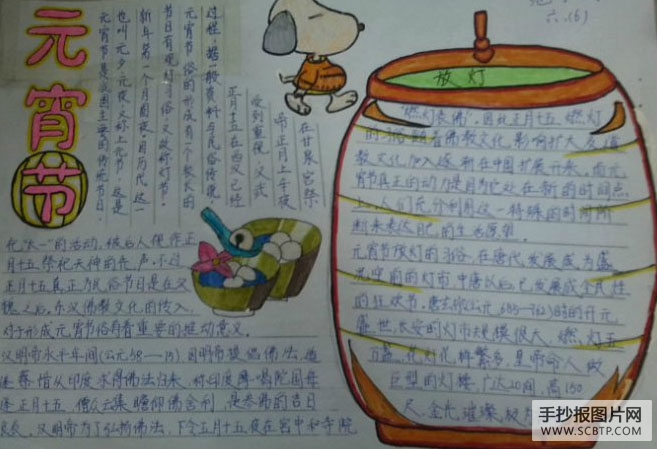 元宵节
元宵节是我国主要的传统节日,
也叫元夕、元夜,又称上元节,这是
新年第一个月圆夜。因历代这一
节日有观灯习俗,又故称灯节。
元宵节俗的形成有一个较长的
过程,据一般资料与民俗传说,
正月十五在西汉已经
受到重视,汉武
帝正月上辛夜
在甘泉宫祭
祀“太一”的活动,被后人视作正
月十五祭祀天神的先声。不过,
正月十五真正为民俗节日是在汉
魏之后。东汉佛教文化的传入,
对于形成元宵节俗有着重要的推动意义。
汉明帝永平年间(公元58—75)因明帝提倡佛法,适
逢蔡愔从印度求得佛法归来,称印度摩喝陀国每
逢正月十五,僧众云集瞻仰佛舍利,是参佛的吉日
良辰。汉明帝为了弘扬佛法,下令正月十五夜在宫中和寺院
六.(5)
放灯
“燃灯表佛”。因此正月十五燃灯
的习俗随着佛教文化影响扩大及道
教文化加入逐渐在中国扩展开来。而元
宵节真正的动力是因为它处在新的时间点
上,人们充分利用这一特殊的时间阶
段来表达自己的生活愿望。
元宵节放灯的习俗,在唐代发展成为盛
况空前的灯市,中唐以后,已发展成全民性
的狂欢节。唐玄宗(公元685-762)时的开元
盛世,长安的灯市规模很大,燃灯五
万盏,花灯花样繁多,皇帝命人做
巨型的灯楼,广达20间,高150
尺,金光璀璨,极
手抄报图片网
WWW.SCBTP.COM